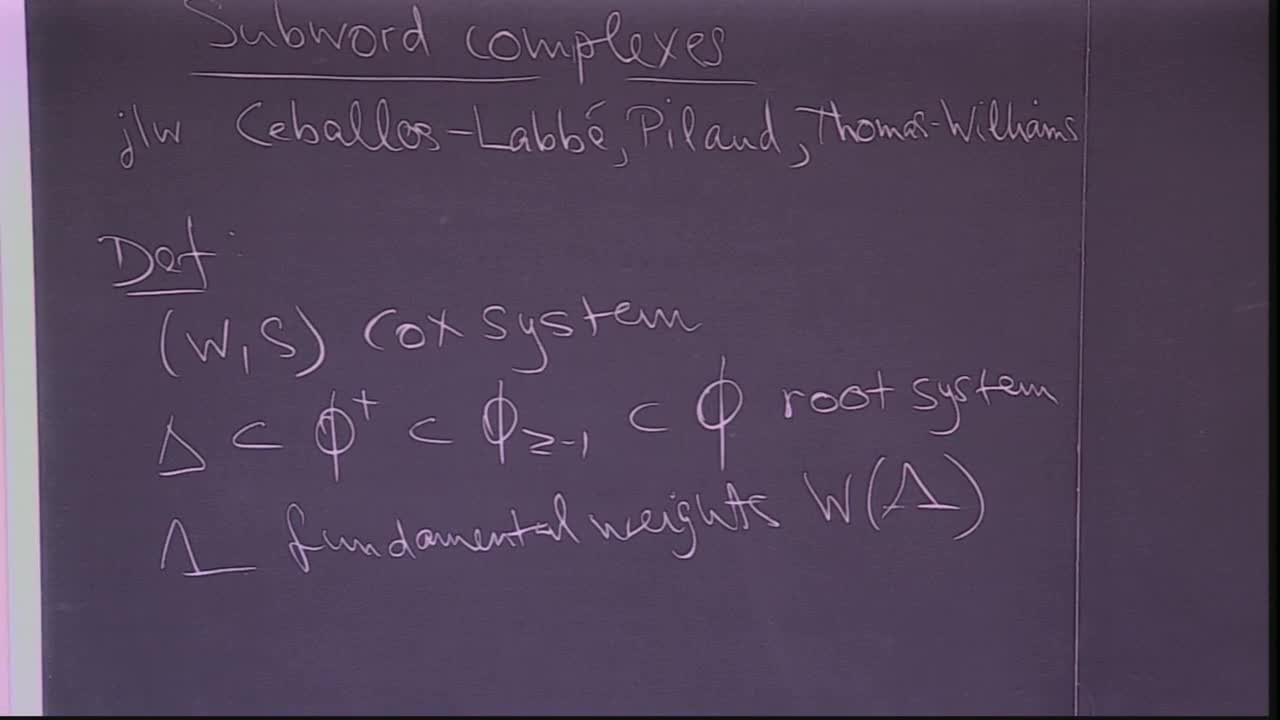 Subword complexes
j/w Ceballos-Labbé, Pilaud, Thomas-Williams
Def:
(W,S) Cox system
Δ ⊂ Φ⁺ ⊂ Φ≥-1 ⊂ Φ root system
Λ fundamental weights W(Λ)